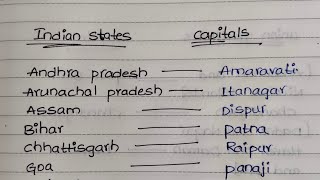 Indian states capitals
Andhra pradesh — Amaravati
Arunachal pradesh — Itanagar
Assam — Dispur
Bihar — patna
chhattisgarh — Raipur
Goa — panaji